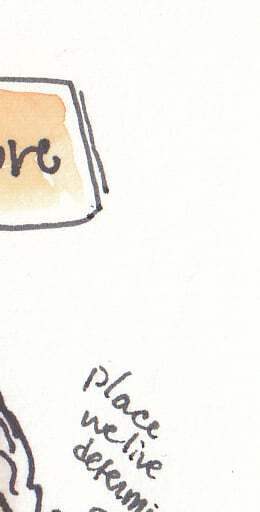 ore
place
we live
determi